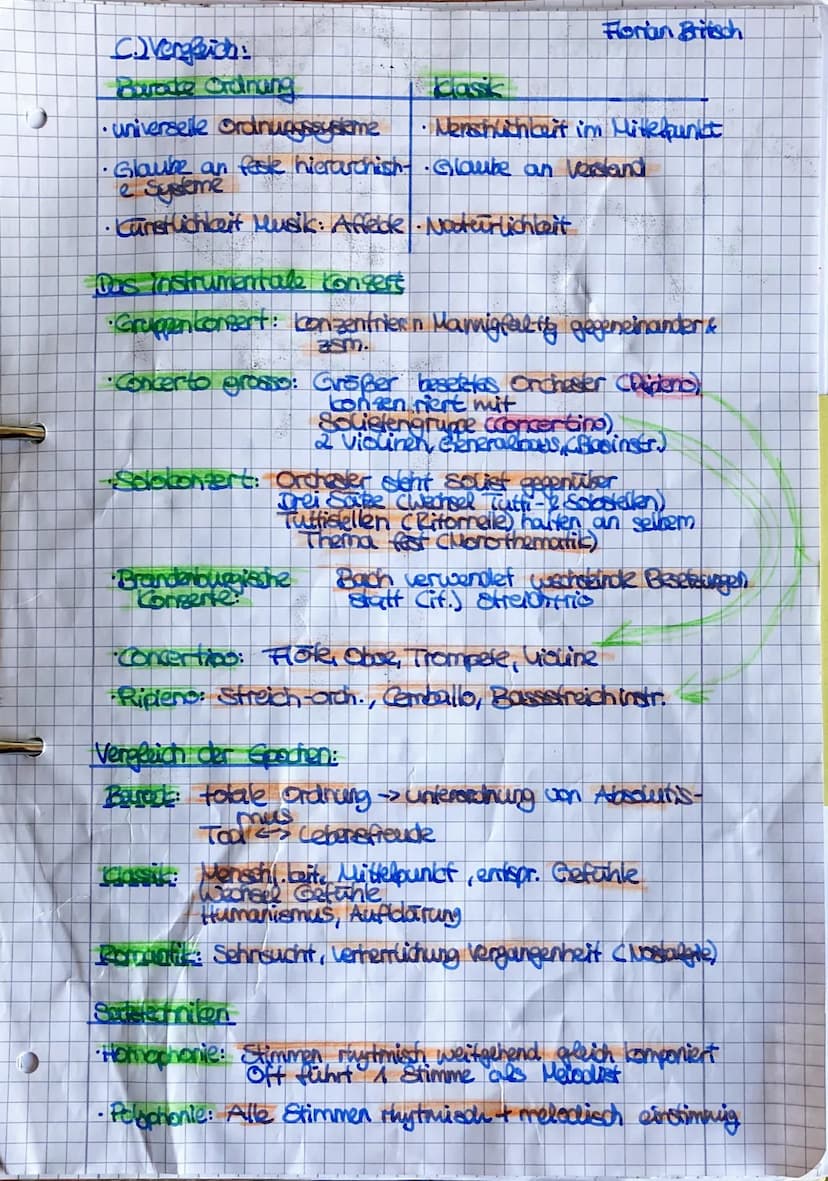 Florian Britsch
C.) Vergleich:
Barocke Ordnung
Klassik
· universelle Ordnungssysteme
· Menschlichkeit im Mittelpunkt
· Glaube an feste hierarchisch-
e Systeme
· Glaube an Verstand
· Künstlichkeit Musik: Affekte
· Naatürlichkeit
Das instrumentale Konzert
· Gruppenkonzert: konzentrieren Mannigfaltig gegeneinander &
zsm.
· Concerto grosso: Größer besetztes Orchester (Ripieno)
konzertriert mit
Solistengruppe (Concertino)
2 Violinen, Generalbass, (Blasinstr.)
· Solokonzert: Orchester steht Solist gegenüber
Drei Sätze (Wechsel Tutti- & Solostellen)
Tuttistellen (Ritornelle) halten an selbem
Thema fest (Monothematik)
· Brandenburgische Bach verwendet wechselnde Besetzungen
Konzerte: statt (it.) Streichtrio
· Concertino: Flöte, Oboe, Trompete, Violine
· Ripieno: Streich-orch., Cembalo, Bassstreichinstr.
Vergleich der Epochen:
Barock: totale Ordnung → Unterordnung von Absolutis-
mus
Tod <-> Lebensfreude
Klassik: Menschl.keit, Mittelpunkt, entspr. Gefühle
Wechsel Gefühle
Humanismus, Aufklärung
Romantik: Sehnsucht, Verherrlichung Vergangenheit (Nostalgie)
Satztechniken
· Homophonie: Stimmen rhytmisch weitgehend gleich komponiert
Oft führt 1 Stimme als Melodist
· Polyphonie: Alle Stimmen rhytmisch + melodisch einstimmig